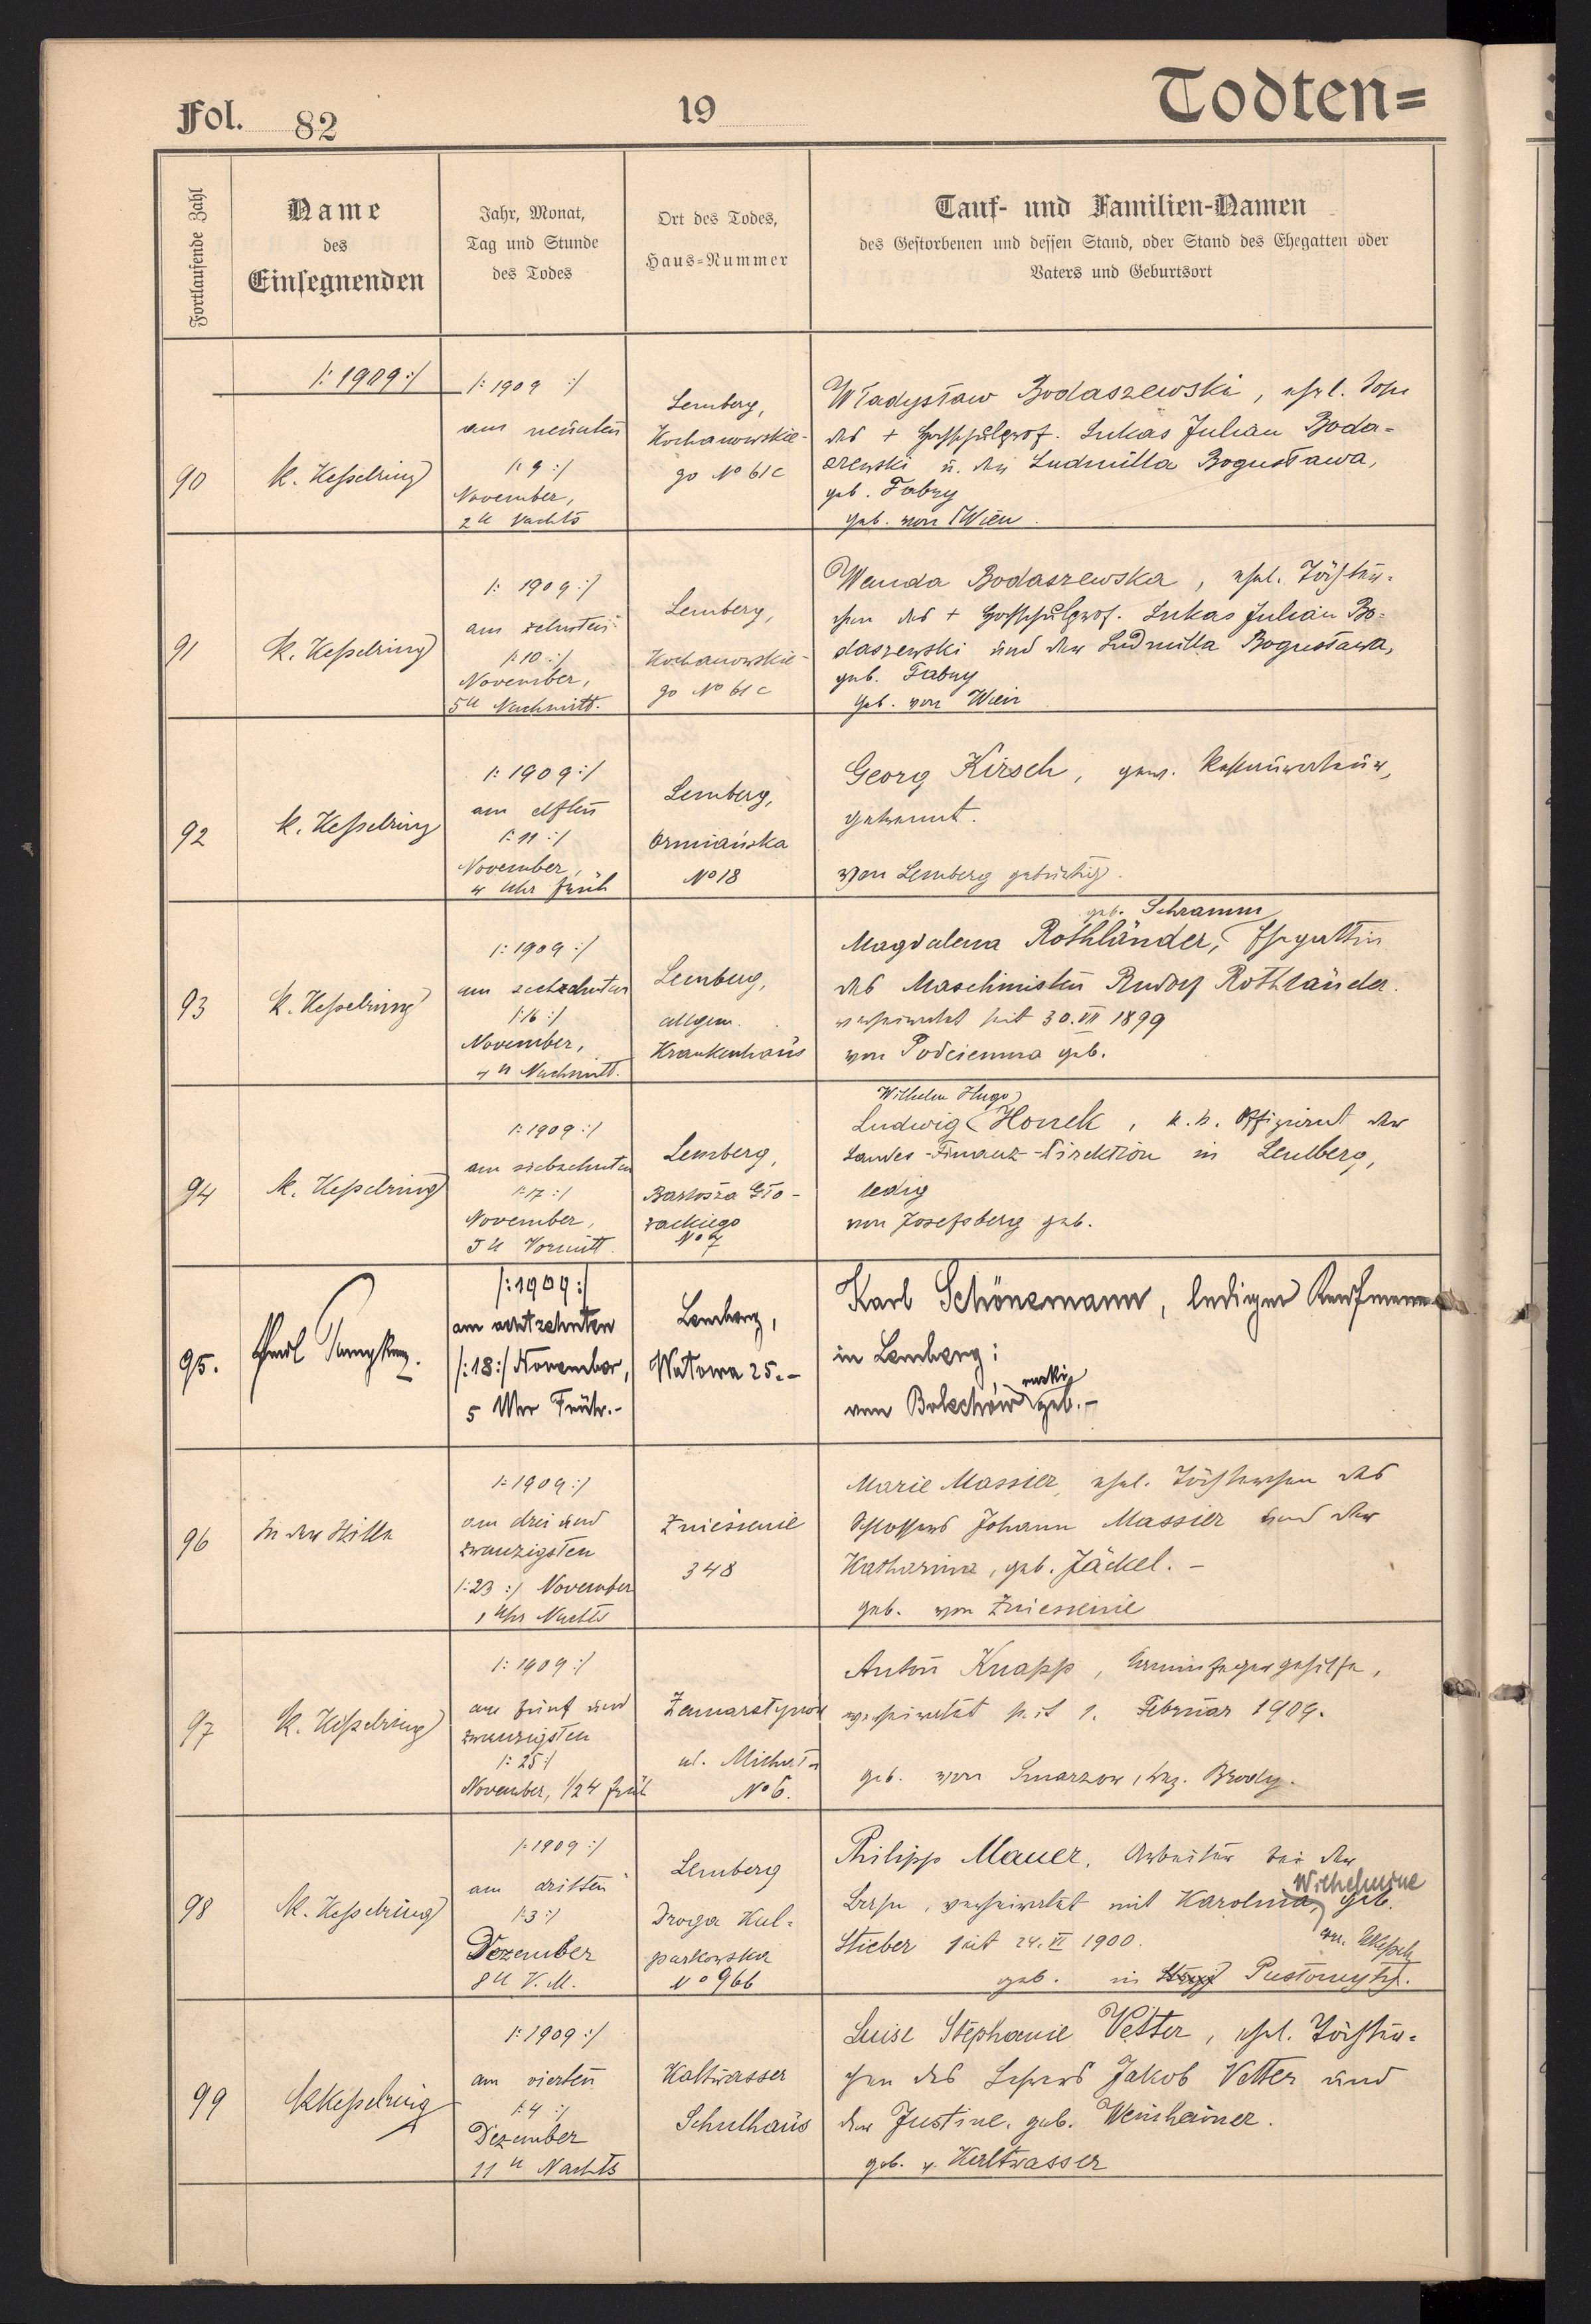 Fol. 82
19
Todten=
Fortlaufende Zahl
Name
des
Einsegnenden
Jahr, Monat,
Tag und Stunde
des Todes
Ort des Todes,
Haus-Nummer
Tauf- und Familien-Namen
des Gestorbenen und dessen Stand, oder Stand des Ehegatten oder
Vaters und Geburtsort
/: 1909 :/
90
K. Keßelring
/: 1909 :/
am neunten
/: 9 :/
November,
2 U Nachts
Lemberg,
Kochanowskie-
go No 61c
Władysław Bodaszewski, ehel. Sohn
des + Hochschulprof. Lukas Julian Boda-
szewski u. der Ludmilla Bogusława,
geb. Fabry
geb. von Wien.
91
K. Keßelring
/: 1909 :/
am zehnten
/: 10 :/
November,
5 U Nachmitt.
Lemberg,
Kochanowskie-
go No 61c
Wanda Bodaszewska, ehel. Töchter-
chen des + Hochschulprof. Lukas Julian Bo-
daszewski und der Ludmilla Bogusława,
geb. Fabry
geb. von Wien
92
K. Keßelring
/: 1909 :/
am elften
/: 11 :/
November,
4 Uhr Früh
Lemberg,
Ormiańska
No 18
Georg Kirsch, gew. Restaurateur,
getrennt.
von Lemberg gebürtig.
93
K. Keßelring
/: 1909 :/
am sechzehnten
/: 16 :/
November,
4 U Nachmitt.
Lemberg,
allgem.
Krankenhaus
geb. Schramm
Magdalena Rothländer, Ehegattin
des Maschinisten Rudolf Rothländer.
verheiratet seit 30. VII 1899
von Podciemna geb.
94
K. Keßelring
/: 1909 :/
am siebzehnten
/: 17 :/
November,
5 U Vormitt.
Lemberg,
Bartosza Gło-
wackiego
No 7
Wilhelm Hugo
Ludwig Honek, k. k. Offizient der
Landes-Finanz-Direktion in Lemberg,
ledig
von Josefsberg geb.
95.
/: 1909 :/
am achtzehnten
/: 18 :/ November,
5 Uhr Früh.-
Lemberg,
Wałowa 25.-
Karl Schönemann, lediger Kaufmann
in Lemberg;
von Bolechów ruski geb.-
96
In der Stille
/: 1909 :/
am drei und
zwanzigsten
/: 23 :/ November
1 Uhr Nachts
Zniesienie
348
Marie Massier, ehel. Töchterchen des
Schlossers Johann Massier und der
Katharina, geb. Jäckel. -
geb. von Zniesienie
97
K. Keßelring
/: 1909 :/
am fünf und
zwanzigsten
/: 25 :/
November, 1/2 4 Früh
Zamarstynow
ul. Michała
No 6.
Anton Knapp, Kaminfegergehilfe,
verheiratet seit 1. Februar 1909.
geb. von Smarzow, bez. Brody.
98
K. Keßelring
/: 1909 :/
am dritten
/: 3 :/
Dezember
8 U V. M.
Lemberg
Droga Kul-
parkowska
No 966
Philipp Mauer, Arbeiter bei der
Wilhelmine
Bahn, verheiratet mit Karolina, geb.
Stieber seit 24. VI 1900.
geb. in Pustomyty.
99
KKeßelring
/: 1909 :/
am vierten
/: 4 :/
Dezember
11 U Nachts
Kaltwasser
Schulhaus
Luise Stephanie Vetter, ehel. Töchter-
chen des Lehrers Jakob Vetter und
der Justine, geb. Weinheimer.
geb. v. Kaltwasser